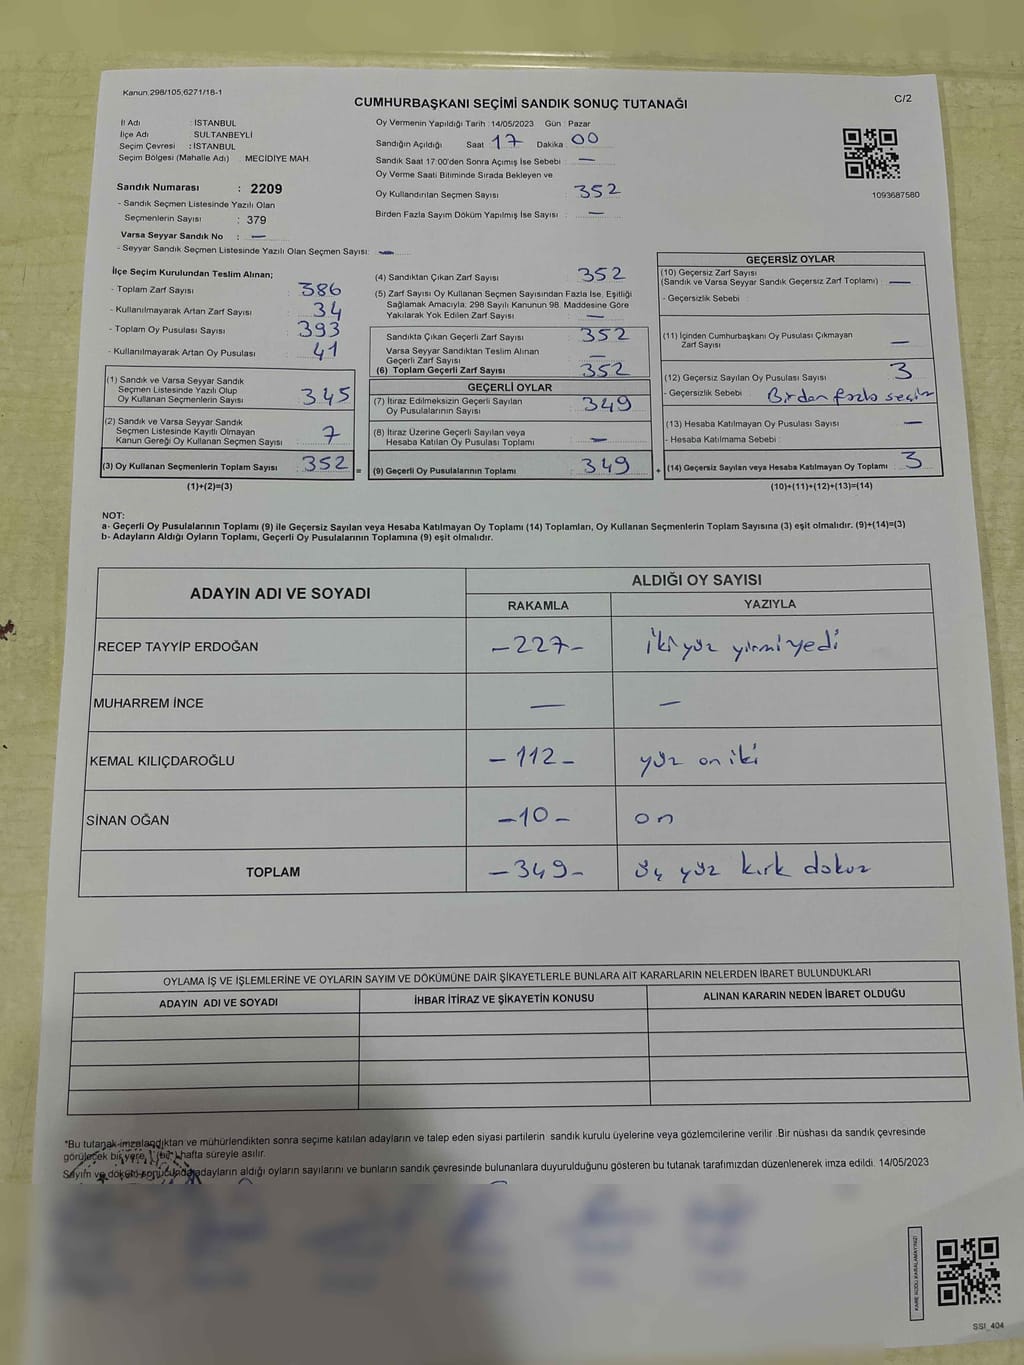 Kanun 298/105,6271/18-1
CUMHURBAŞKANI SEÇİMİ SANDIK SONUÇ TUTANAĞI
C/2
İl Adı : İSTANBUL
İlçe Adı : SULTANBEYLİ
Seçim Çevresi : İSTANBUL
Seçim Bölgesi (Mahalle Adı) : MECİDİYE MAH.
Sandık Numarası : 2209
- Sandık Seçmen Listesinde Yazılı Olan
Seçmenlerin Sayısı : 379
Varsa Seyyar Sandık No : —
- Seyyar Sandık Seçmen Listesinde Yazılı Olan Seçmen Sayısı: —
Oy Vermenin Yapıldığı Tarih : 14/05/2023 Gün : Pazar
Sandığın Açıldığı Saat 17 Dakika 00
Sandık Saat 17:00'den Sonra Açımış İse Sebebi : —
Oy Verme Saati Bitiminde Sırada Bekleyen ve
Oy Kullandırılan Seçmen Sayısı : 352
Birden Fazla Sayım Döküm Yapılmış İse Sayısı : —
1093687580
İlçe Seçim Kurulundan Teslim Alınan;
- Toplam Zarf Sayısı : 386
- Kullanılmayarak Artan Zarf Sayısı : 34
- Toplam Oy Pusulası Sayısı : 393
- Kullanılmayarak Artan Oy Pusulası : 41
(1) Sandık ve Varsa Seyyar Sandık
Seçmen Listesinde Yazılı Olup
Oy Kullanan Seçmenlerin Sayısı : 345
(2) Sandık ve Varsa Seyyar Sandık
Seçmen Listesinde Kayıtlı Olmayan
Kanun Gereği Oy Kullanan Seçmen Sayısı : 7
(3) Oy Kullanan Seçmenlerin Toplam Sayısı : 352 =
(1)+(2)=(3)
(4) Sandıktan Çıkan Zarf Sayısı : 352
(5) Zarf Sayısı Oy Kullanan Seçmen Sayısından Fazla İse, Eşitliği
Sağlamak Amacıyla, 298 Sayılı Kanunun 98. Maddesine Göre
Yakılarak Yok Edilen Zarf Sayısı : —
Sandıkta Çıkan Geçerli Zarf Sayısı : 352
Varsa Seyyar Sandıktan Teslim Alınan
Geçerli Zarf Sayısı : —
(6) Toplam Geçerli Zarf Sayısı : 352
GEÇERLİ OYLAR
(7) İtiraz Edilmeksizin Geçerli Sayılan
Oy Pusulalarının Sayısı : 349
(8) İtiraz Üzerine Geçerli Sayılan veya
Hesaba Katılan Oy Pusulası Toplamı : —
(9) Geçerli Oy Pusulalarının Toplamı : 349 +
GEÇERSİZ OYLAR
(10) Geçersiz Zarf Sayısı
(Sandık ve Varsa Seyyar Sandık Geçersiz Zarf Toplamı) : —
- Geçersizlik Sebebi :
(11) İçinden Cumhurbaşkanı Oy Pusulası Çıkmayan
Zarf Sayısı : —
(12) Geçersiz Sayılan Oy Pusulası Sayısı : 3
- Geçersizlik Sebebi : Birden fazla seçim
(13) Hesaba Katılmayan Oy Pusulası Sayısı : —
- Hesaba Katılmama Sebebi :
(14) Geçersiz Sayılan veya Hesaba Katılmayan Oy Toplamı : 3
(10)+(11)+(12)+(13)=(14)
NOT:
a- Geçerli Oy Pusulalarının Toplamı (9) ile Geçersiz Sayılan veya Hesaba Katılmayan Oy Toplamı (14) Toplamları, Oy Kullanan Seçmenlerin Toplam Sayısına (3) eşit olmalıdır. (9)+(14)=(3)
b- Adayların Aldığı Oyların Toplamı, Geçerli Oy Pusulalarının Toplamına (9) eşit olmalıdır.
ADAYIN ADI VE SOYADI
ALDIĞI OY SAYISI
RAKAMLA YAZIYLA
RECEP TAYYİP ERDOĞAN -227- iki yüz yirmi yedi
MUHARREM İNCE — —
KEMAL KILIÇDAROĞLU -112- yüz on iki
SİNAN OĞAN -10- on
TOPLAM -349- üç yüz kırk dokuz
OYLAMA İŞ VE İŞLEMLERİNE VE OYLARIN SAYIM VE DÖKÜMÜNE DAİR ŞİKAYETLERLE BUNLARA AİT KARARLARIN NELERDEN İBARET BULUNDUKLARI
ADAYIN ADI VE SOYADI İHBAR İTİRAZ VE ŞİKAYETİN KONUSU ALINAN KARARIN NEDEN İBARET OLDUĞU
*Bu tutanak imzalandıktan ve mühürlendikten sonra seçime katılan adayların ve talep eden siyasi partilerin sandık kurulu üyelerine veya gözlemcilerine verilir. Bir nüshası da sandık çevresinde
görülecek bir yere, 1 (bir) hafta süreyle asılır.
Sayım ve döküm sonucunda adayların aldığı oyların sayılarını ve bunların sandık çevresinde bulunanlara duyurulduğunu gösteren bu tutanak tarafımızdan düzenlenerek imza edildi. 14/05/2023
KARE KODU KARALAMAYINIZ!
SSI_404